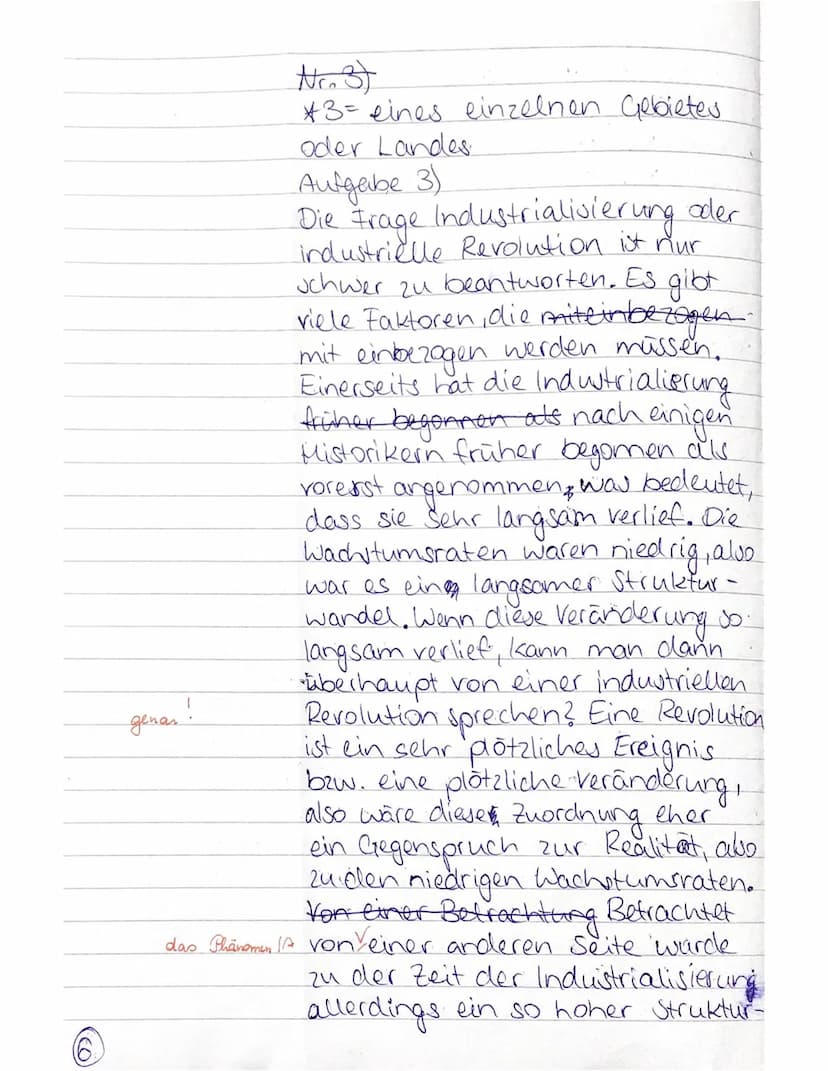 Nr. 3)
*3= eines einzelnen Gebietes
oder Landes
Aufgabe 3)
Die Frage Industrialisierung oder
industrielle Revolution ist nur
schwer zu beantworten. Es gibt
viele Faktoren, die miteinbezogen
mit einbezogen werden müssen.
Einerseits hat die Industrialierung
früher begonnen als nach einigen
Historikern früher begonnen als
vorerst angenommen, was bedeutet,
dass sie sehr langsam verlief. Die
Wachstumsraten waren niedrig, also
war es ein langsamer Struktur-
wandel. Wenn diese Veränderung so
langsam verlief, kann man dann
überhaupt von einer industriellen
genau! Revolution sprechen? Eine Revolution
ist ein sehr plötzliches Ereignis
bzw. eine plötzliche Veränderung,
also wäre diese Zuordnung eher
ein Gegenspruch zur Realität, also
zu den niedrigen Wachstumsraten.
Von einer Betrachtung Betrachtet
das Phänomen //A von √ einer anderen Seite wurde
zu der Zeit der Industrialisierung
allerdings ein so hoher Struktur-
6